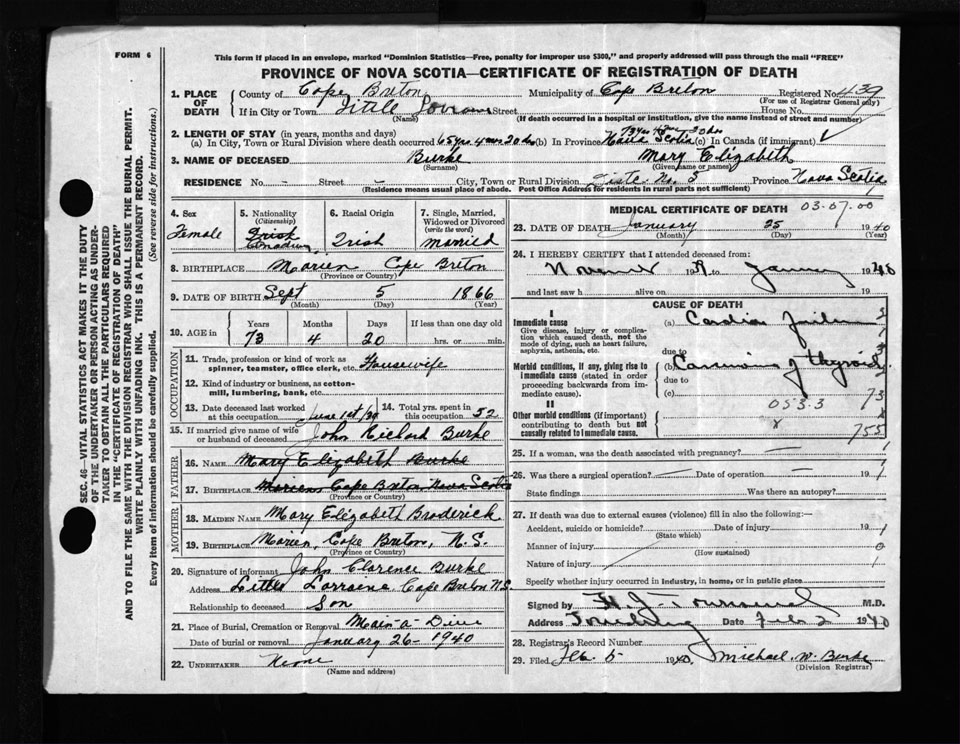 FORM 6
This form if placed in an envelope, marked "Dominion Statistics—Free, penalty for improper use $300," and properly addressed will pass through the mail "FREE"
PROVINCE OF NOVA SCOTIA—CERTIFICATE OF REGISTRATION OF DEATH
1. PLACE OF DEATH County of Cape Breton Municipality of Cape Breton Registered No. 439
(For use of Registrar General only)
If in City or Town Little Lorraine Street House No.
(Name) (If death occurred in a hospital or institution, give the name instead of street and number)
2. LENGTH OF STAY (in years, months and days)
73 yrs 4 mos 20 ds
(a) In City, Town or Rural Division where death occurred 65 yrs. 4 mos 20 ds (b) In Province Nova Scotia (c) In Canada (if immigrant)
3. NAME OF DECEASED Burke Mary Elizabeth
(Surname) (Given name or names)
RESIDENCE No. - Street - City, Town or Rural Division Diste. No. 5 Province Nova Scotia
(Residence means usual place of abode. Post Office Address for residents in rural parts not sufficient)
4. Sex Female
5. Nationality (Citizenship) Irish Canadian
6. Racial Origin Irish
7. Single, Married, Widowed or Divorced (write the word) Married
8. BIRTHPLACE Marien Cape Breton
(Province or Country)
9. DATE OF BIRTH Sept 5 1866
(Month) (Day) (Year)
10. AGE in Years Months Days If less than one day old
73 4 20 hrs. or min.
OCCUPATION
11. Trade, profession or kind of work as spinner, teamster, office clerk, etc. Housewife
12. Kind of industry or business, as cotton-mill, lumbering, bank, etc.
13. Date deceased last worked at this occupation June 1st/39 14. Total yrs. spent in this occupation 52
15. If married give name of wife or husband of deceased John Richard Burke
FATHER
16. NAME Mary Elizabeth Burke
17. BIRTHPLACE Marien Cape Breton Nova Scotia
(Province or Country)
MOTHER
18. MAIDEN NAME Mary Elizabeth Broderick
19. BIRTHPLACE Marien, Cape Breton, N.S.
(Province or Country)
20. Signature of informant John Clarence Burke
Address Little Lorraine Cape Breton N.S.
Relationship to deceased Son
21. Place of Burial, Cremation or Removal Main-a-Dieu
Date of burial or removal January 26 - 1940
22. UNDERTAKER None
(Name and address)
MEDICAL CERTIFICATE OF DEATH 03-07.00
23. DATE OF DEATH January 25 1940
(Month) (Day) (Year)
24. I HEREBY CERTIFY that I attended deceased from:
November 1939 to January 1940
and last saw h alive on 19
CAUSE OF DEATH
I
Immediate cause (a) Cardiac Failure
Give disease, injury or complication which caused death, not the mode of dying, such as heart failure, asphyxia, asthenia, etc.
due to
Morbid conditions, if any, giving rise to immediate cause (stated in order proceeding backwards from immediate cause). (b) Carcinoma of thyroid
due to
(c) 73
053.3
II
Other morbid conditions (if important) contributing to death but not causally related to immediate cause. x 755
25. If a woman, was the death associated with pregnancy?
26. Was there a surgical operation? Date of operation 19
State findings Was there an autopsy?
27. If death was due to external causes (violence) fill in also the following:—
Accident, suicide or homicide? Date of injury 19
(State which)
Manner of injury
(How sustained)
Nature of injury
Specify whether injury occurred in industry, in home, or in public place
Signed by M.D.
Address Louisburg Date Feb 2 1940
28. Registrar's Record Number
29. Filed Feb. 5 1940, Michael. W. Burke
(Division Registrar)
SEC. 46—VITAL STATISTICS ACT MAKES IT THE DUTY
OF THE UNDERTAKER OR PERSON ACTING AS UNDER-
TAKER TO OBTAIN ALL THE PARTICULARS REQUIRED
IN THE "CERTIFICATE OF REGISTRATION OF DEATH"
AND TO FILE THE SAME WITH THE DIVISION REGISTRAR WHO SHALL ISSUE THE BURIAL PERMIT.
WRITE PLAINLY WITH UNFADING INK. THIS IS A PERMANENT RECORD.
Every item of information should be carefully supplied. (See reverse side for instructions.)